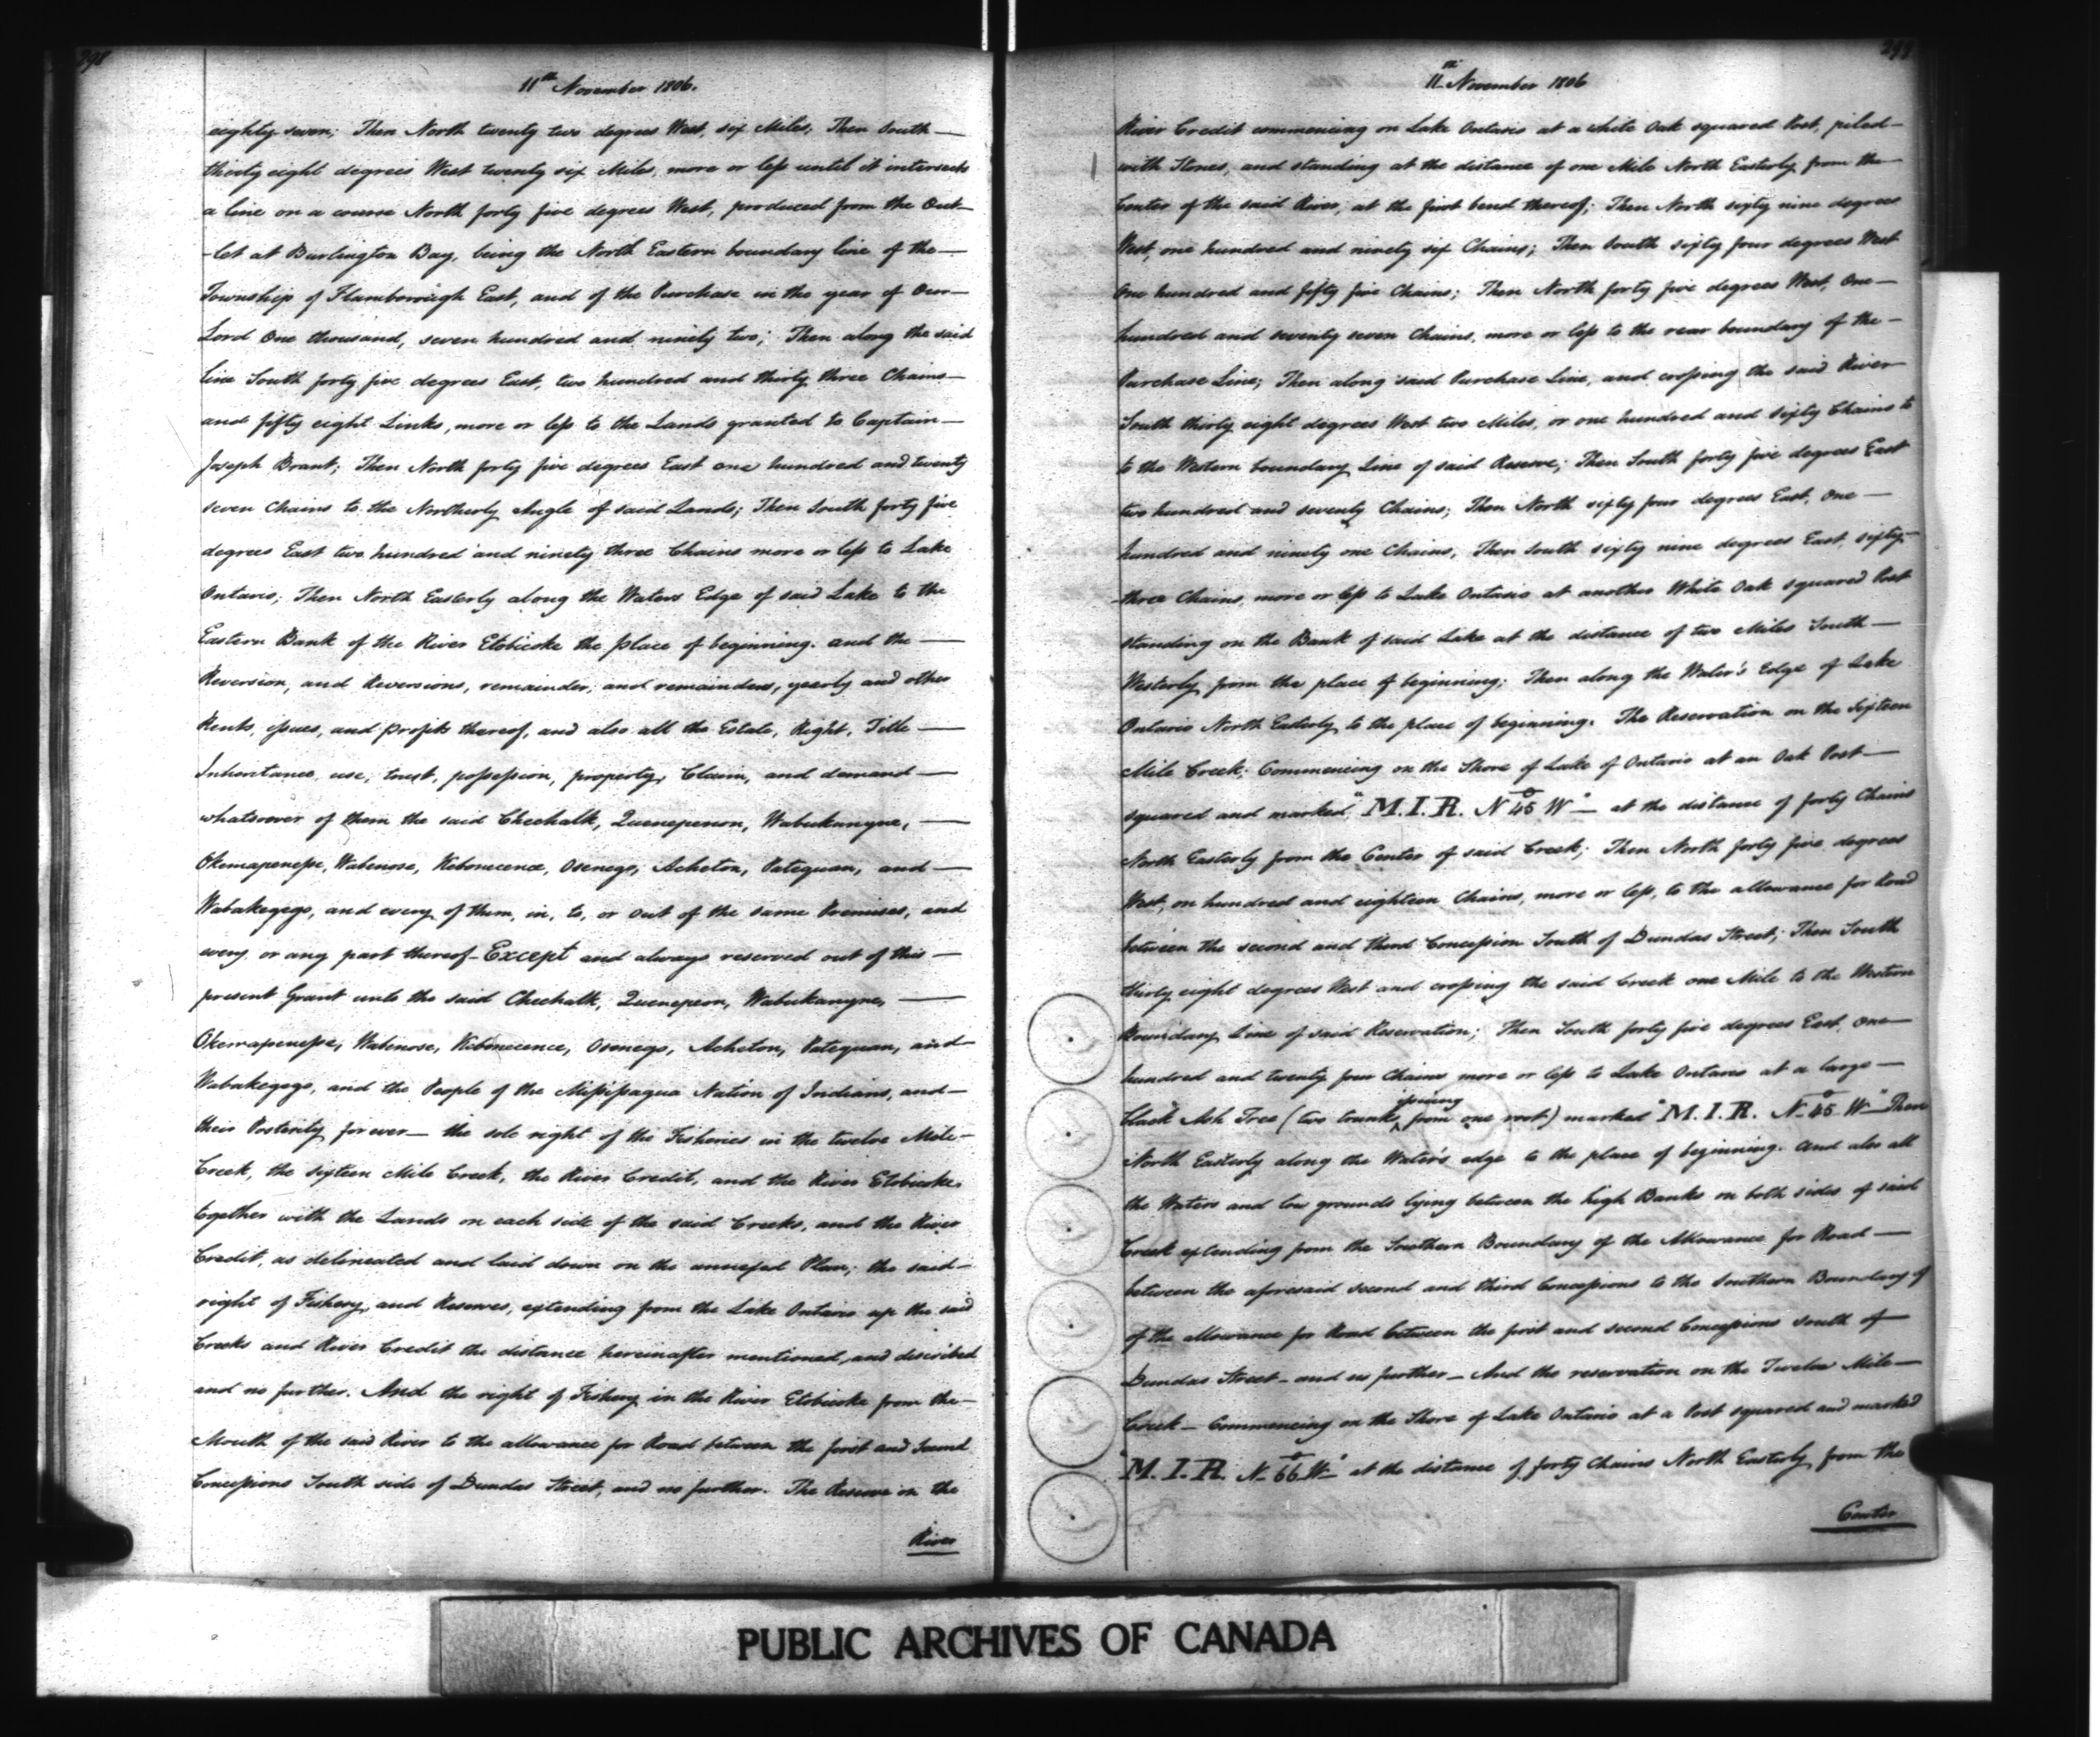 298
11th November 1806.
eighty seven; Then North twenty two degrees West, six Miles, Then South
thirty eight degrees West twenty six Miles, more or less until it intersects
a line on a course North forty five degrees West, produced from the Out-
-let at Burlington Bay, being the North Eastern boundary line of the
Township of Flamborough East, and of the Purchase in the year of Our
Lord One thousand, seven hundred and ninety two; Then along the said
line South forty five degrees East, two hundred and thirty three Chains
and fifty eight Links, more or less to the Lands granted to Captain
Joseph Brant; Then North forty five degrees East one hundred and twenty
seven Chains to the Northerly Angle of said Lands; Then South forty five
degrees East two hundred and ninety three Chains more or less to Lake
Ontario; Then North Easterly along the Waters Edge of said Lake to the
Eastern Bank of the River Etobicoke the place of beginning. and the
Reversion, and Reversions, remainder, and remainders, yearly and other
Rents, issues, and profits thereof, and also all the Estate, Right, Title
Inheritance, use, trust, possession, property, Claim, and demand
whatsoever of them the said Chechalk, Quenepenon, Wabukanyne,
Okemapenesse, Wabenose, Kebonecence, Osenego, Acheton, Pateguan, and
Wabakegego, and every of them, in, to, or out of the same Premises, and
every or any part thereof - Except and always reserved out of this
present Grant unto the said Chechalk, Quenepeon, Wabukanyne,
Okemapenesse, Wabenose, Kebonecence, Osenego, Acheton, Pateguan, and
Wabakegego, and the People of the Mississagua Nation of Indians, and
their Posterity for ever - the sole right of the Fisheries in the twelve Mile
Creek, the sixteen Mile Creek, the River Credit, and the River Etobicoke,
together with the Lands on each side of the said Creeks, and the River
Credit, as delineated and laid down on the annexed Plan; the said
right of Fishery and Reserves, extending from the Lake Ontario up the said
Creeks and River Credit the distance hereinafter mentioned, and discribed
and no further. And the right of Fishery in the River Etobicoke from the
Mouth of the said River to the allowance for Road between the first and Second
Concessions South side of Dundas Street, and no further. The Reserve on the
River
299
11th November 1806
River Credit commencing on Lake Ontario at a white Oak squared Post, piled
with Stones, and standing at the distance of one Mile North Easterly from the
Center of the said River, at the first bend thereof; Then North sixty nine degrees
West, one hundred and ninety six Chains; Then South sixty four degrees West
One hundred and fifty five Chains; Then North forty five degrees West, One
hundred and seventy seven Chains, more or less to the rear boundary of the
Purchase Line; Then along said Purchase Line, and crossing the said River
South thirty eight degrees West two Miles, or one hundred and sixty Chains to
to the Western boundary Line of said Reserve; Then South forty five degrees East
two hundred and seventy Chains; Then North sixty four degrees East, One
hundred and ninety one Chains, Then South sixty nine degrees East, sixty
three Chains, more or less to Lake Ontario at another White Oak squared Post
standing on the Bank of said Lake at the distance of two Miles South
Westerly from the place of beginning; Then along the Water's Edge of Lake
Ontario North Easterly to the place of beginning. The Reservation on the Sixteen
Mile Creek; Commencing on the Shore of Lake of Ontario at an Oak Post
squared and marked "M.I.R. N 45° W" at the distance of forty Chains
North Easterly from the Center of said Creek; Then North forty five degrees
West, on hundred and eighteen Chains, more or less, to the allowance for Road
between the second and third Concession South of Dundas Street; Then South
thirty eight degrees West and crossing the said Creek one Mile to the Western
Boundary Line of said Reservation; Then South forty five degrees East, One
hundred and twenty four Chains more or less to Lake Ontario at a large
black Ash Tree (two trunks joining from one root) marked "M.I.R. N 45° W" Then
North Easterly along the Water's edge to the place of beginning. And also all
the Waters and low grounds lying between the high Banks on both sides of said
Creek extending from the Southern Boundary of the Allowance for Road
between the aforesaid second and third Concessions to the Southern Boundary of
of the allowance for Road between the first and second Concessions south of
Dundas Street - and no further - And the reservation on the Twelve Mile
Creek - Commencing on the Shore of Lake Ontario at a Post squared and marked
"M.I.R. N 66° W" at the distance of forty Chains North Easterly from the
Center
PUBLIC ARCHIVES OF CANADA